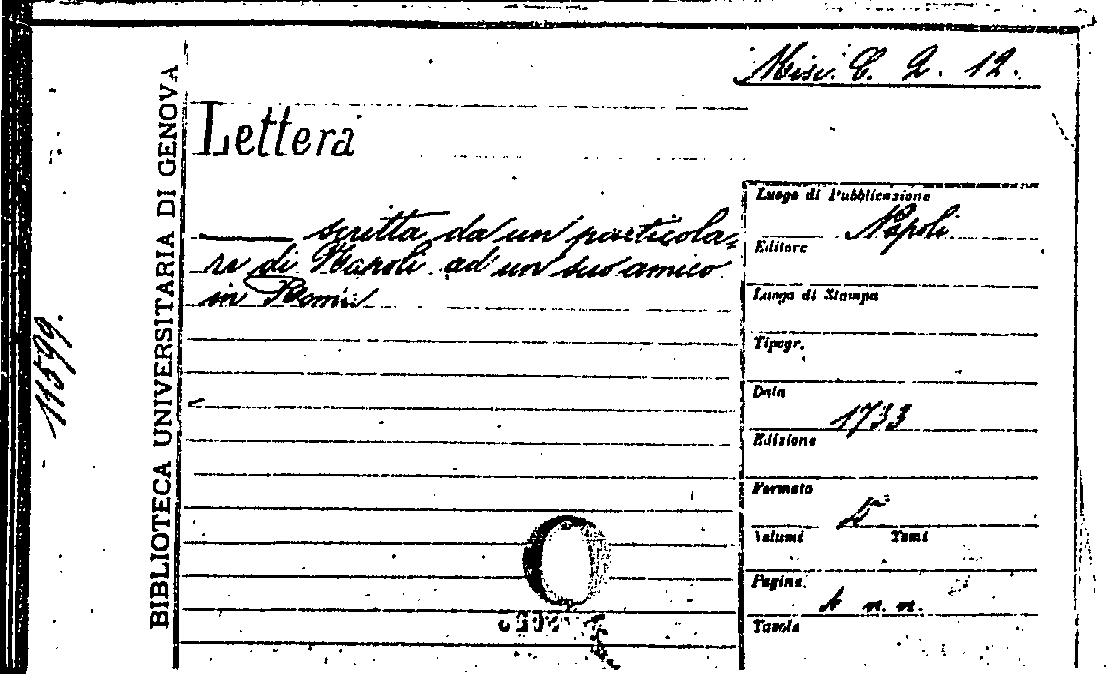 Misc. C. 2. 12.
Lettera
scritta da un particola-
re di Napoli ad un suo amico
in Roma
BIBLIOTECA UNIVERSITARIA DI GENOVA
11599.
Luogo di Pubblicazione
Napoli
Editore
Luogo di Stampa
Tipogr.
Data
1733
Edizione
Formato
Volumi Tomi
Pagine
4 n. n.
Tavole